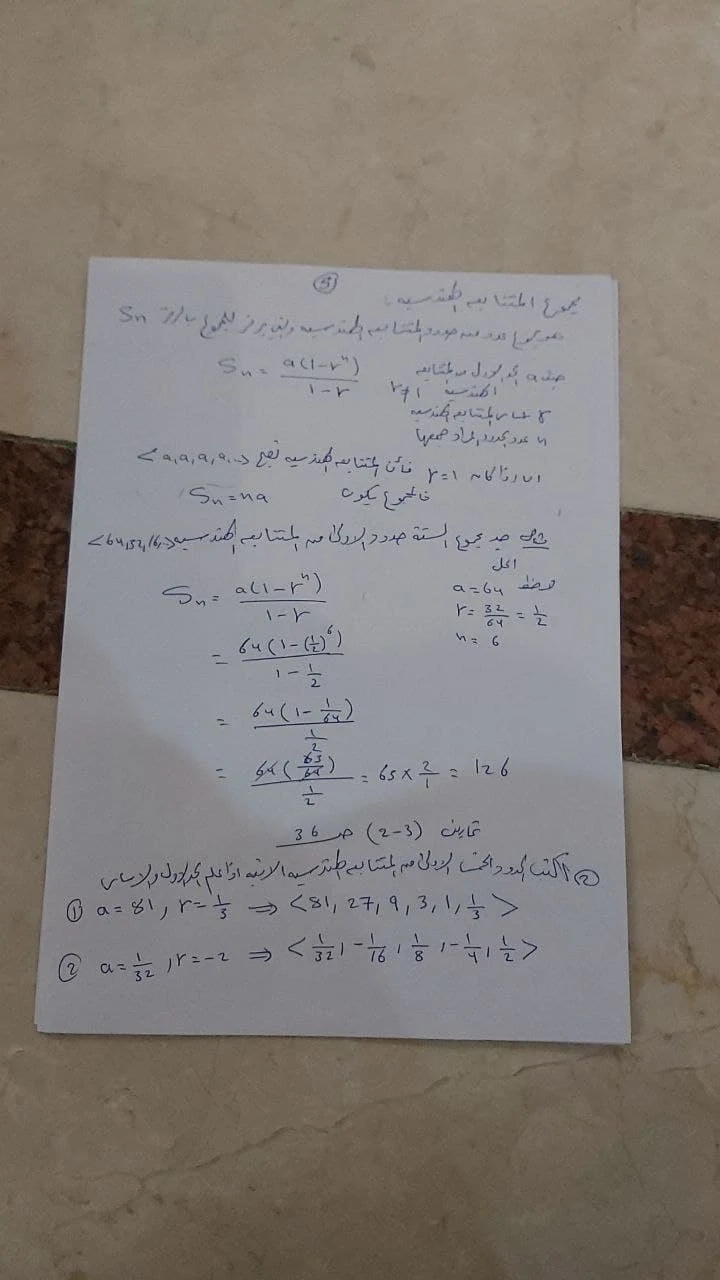 ③
مجموع المتتابعه الهندسيه:
هو مجموع عدد من حدود المتتابعه الهندسيه والذي يرمز للمجموع بالرمز Sn
Sn = a(1-rⁿ) / 1-r
حيث a الحد الاول من المتتابعه
الهندسيه r≠1
r اساس المتتابعه الهندسيه
n عدد الحدود المراد جمعها
اما اذا كانت r=1 فأن المتتابعه الهندسيه تصبح <a,a,a,a,..>
فالمجموع يكون Sn=na
مثال جد مجموع الستة حدود الاولى من المتتابعه الهندسيه <64,32,16,..>
الحل
نلاحظ a=64
r= 32/64 = 1/2
n= 6
Sn= a(1-rⁿ) / 1-r
= 64(1-(1/2)⁶) / 1-1/2
= 64(1-1/64) / 1/2
= 64(63/64) / 1/2 = 63 × 2/1 = 126
تمارين (2-3) صـ 36
② اكتب الحدود الخمسة الاولى من المتتابعه الهندسيه الاتيه اذا علم الحد الاول والاساس
① a=81, r=1/3 ⇒ <81, 27, 9, 3, 1, 1/3>
② a=1/32, r=-2 ⇒ <1/32, -1/16, 1/8, -1/4, 1/2>